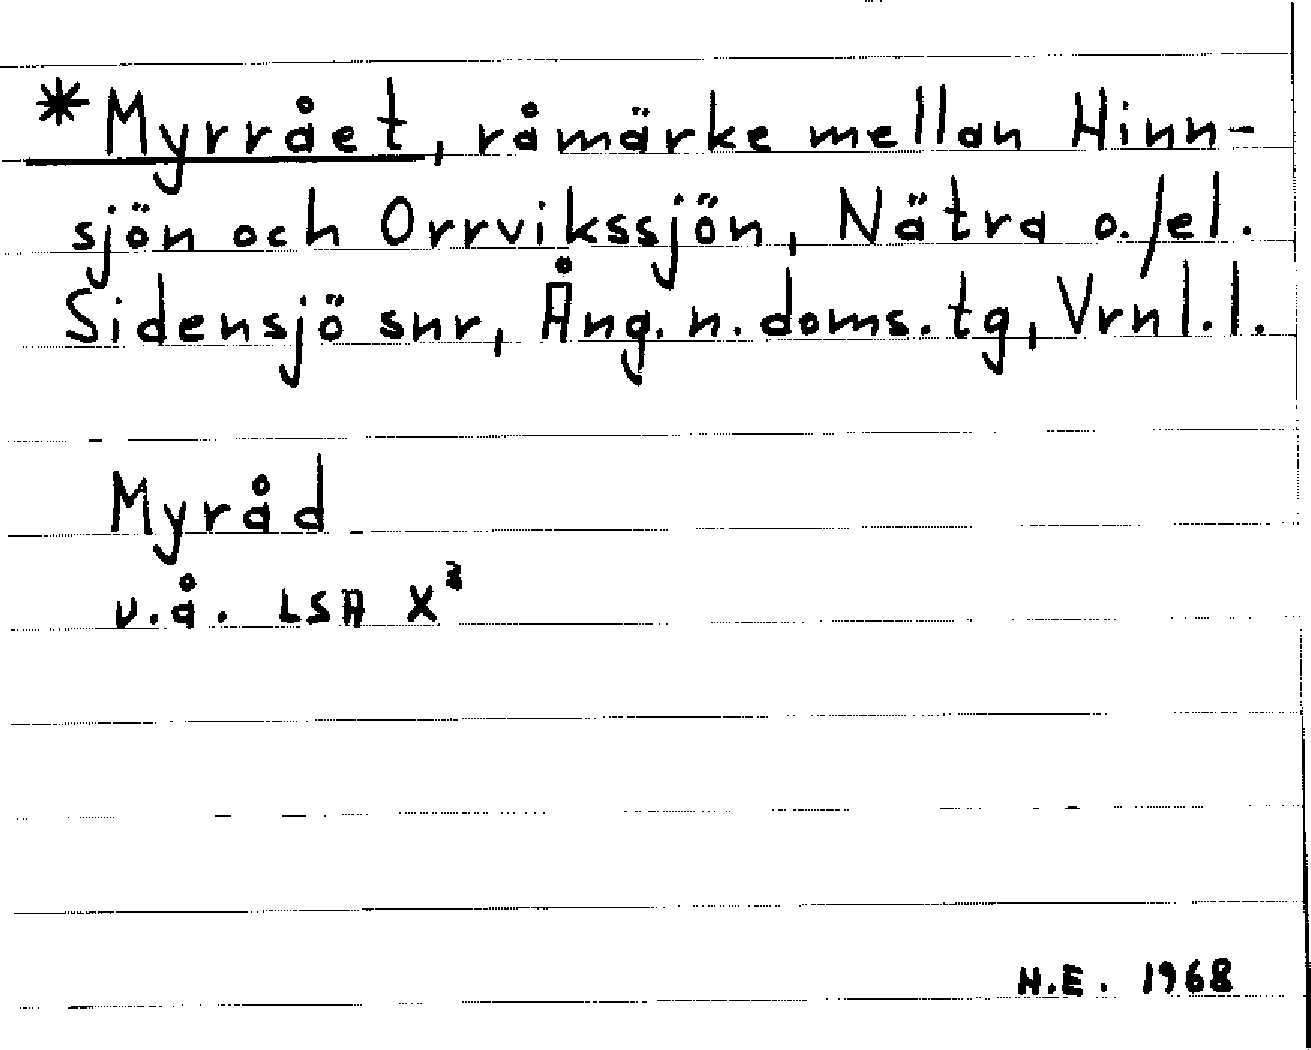 *Myrrået, råmärke mellan Hinn-
sjön och Orrvikssjön, Nätra o./el.
Sidensjö snr, Ång. n. doms. tg, Vrnl. l.
Myråd
u.å. LSA X³
H.E. 1968